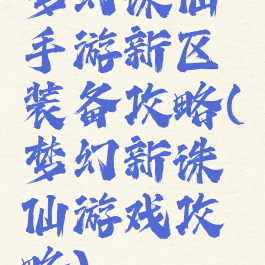 梦幻诛仙
手游新区
装备攻略(
梦幻新诛
仙游戏攻
略)